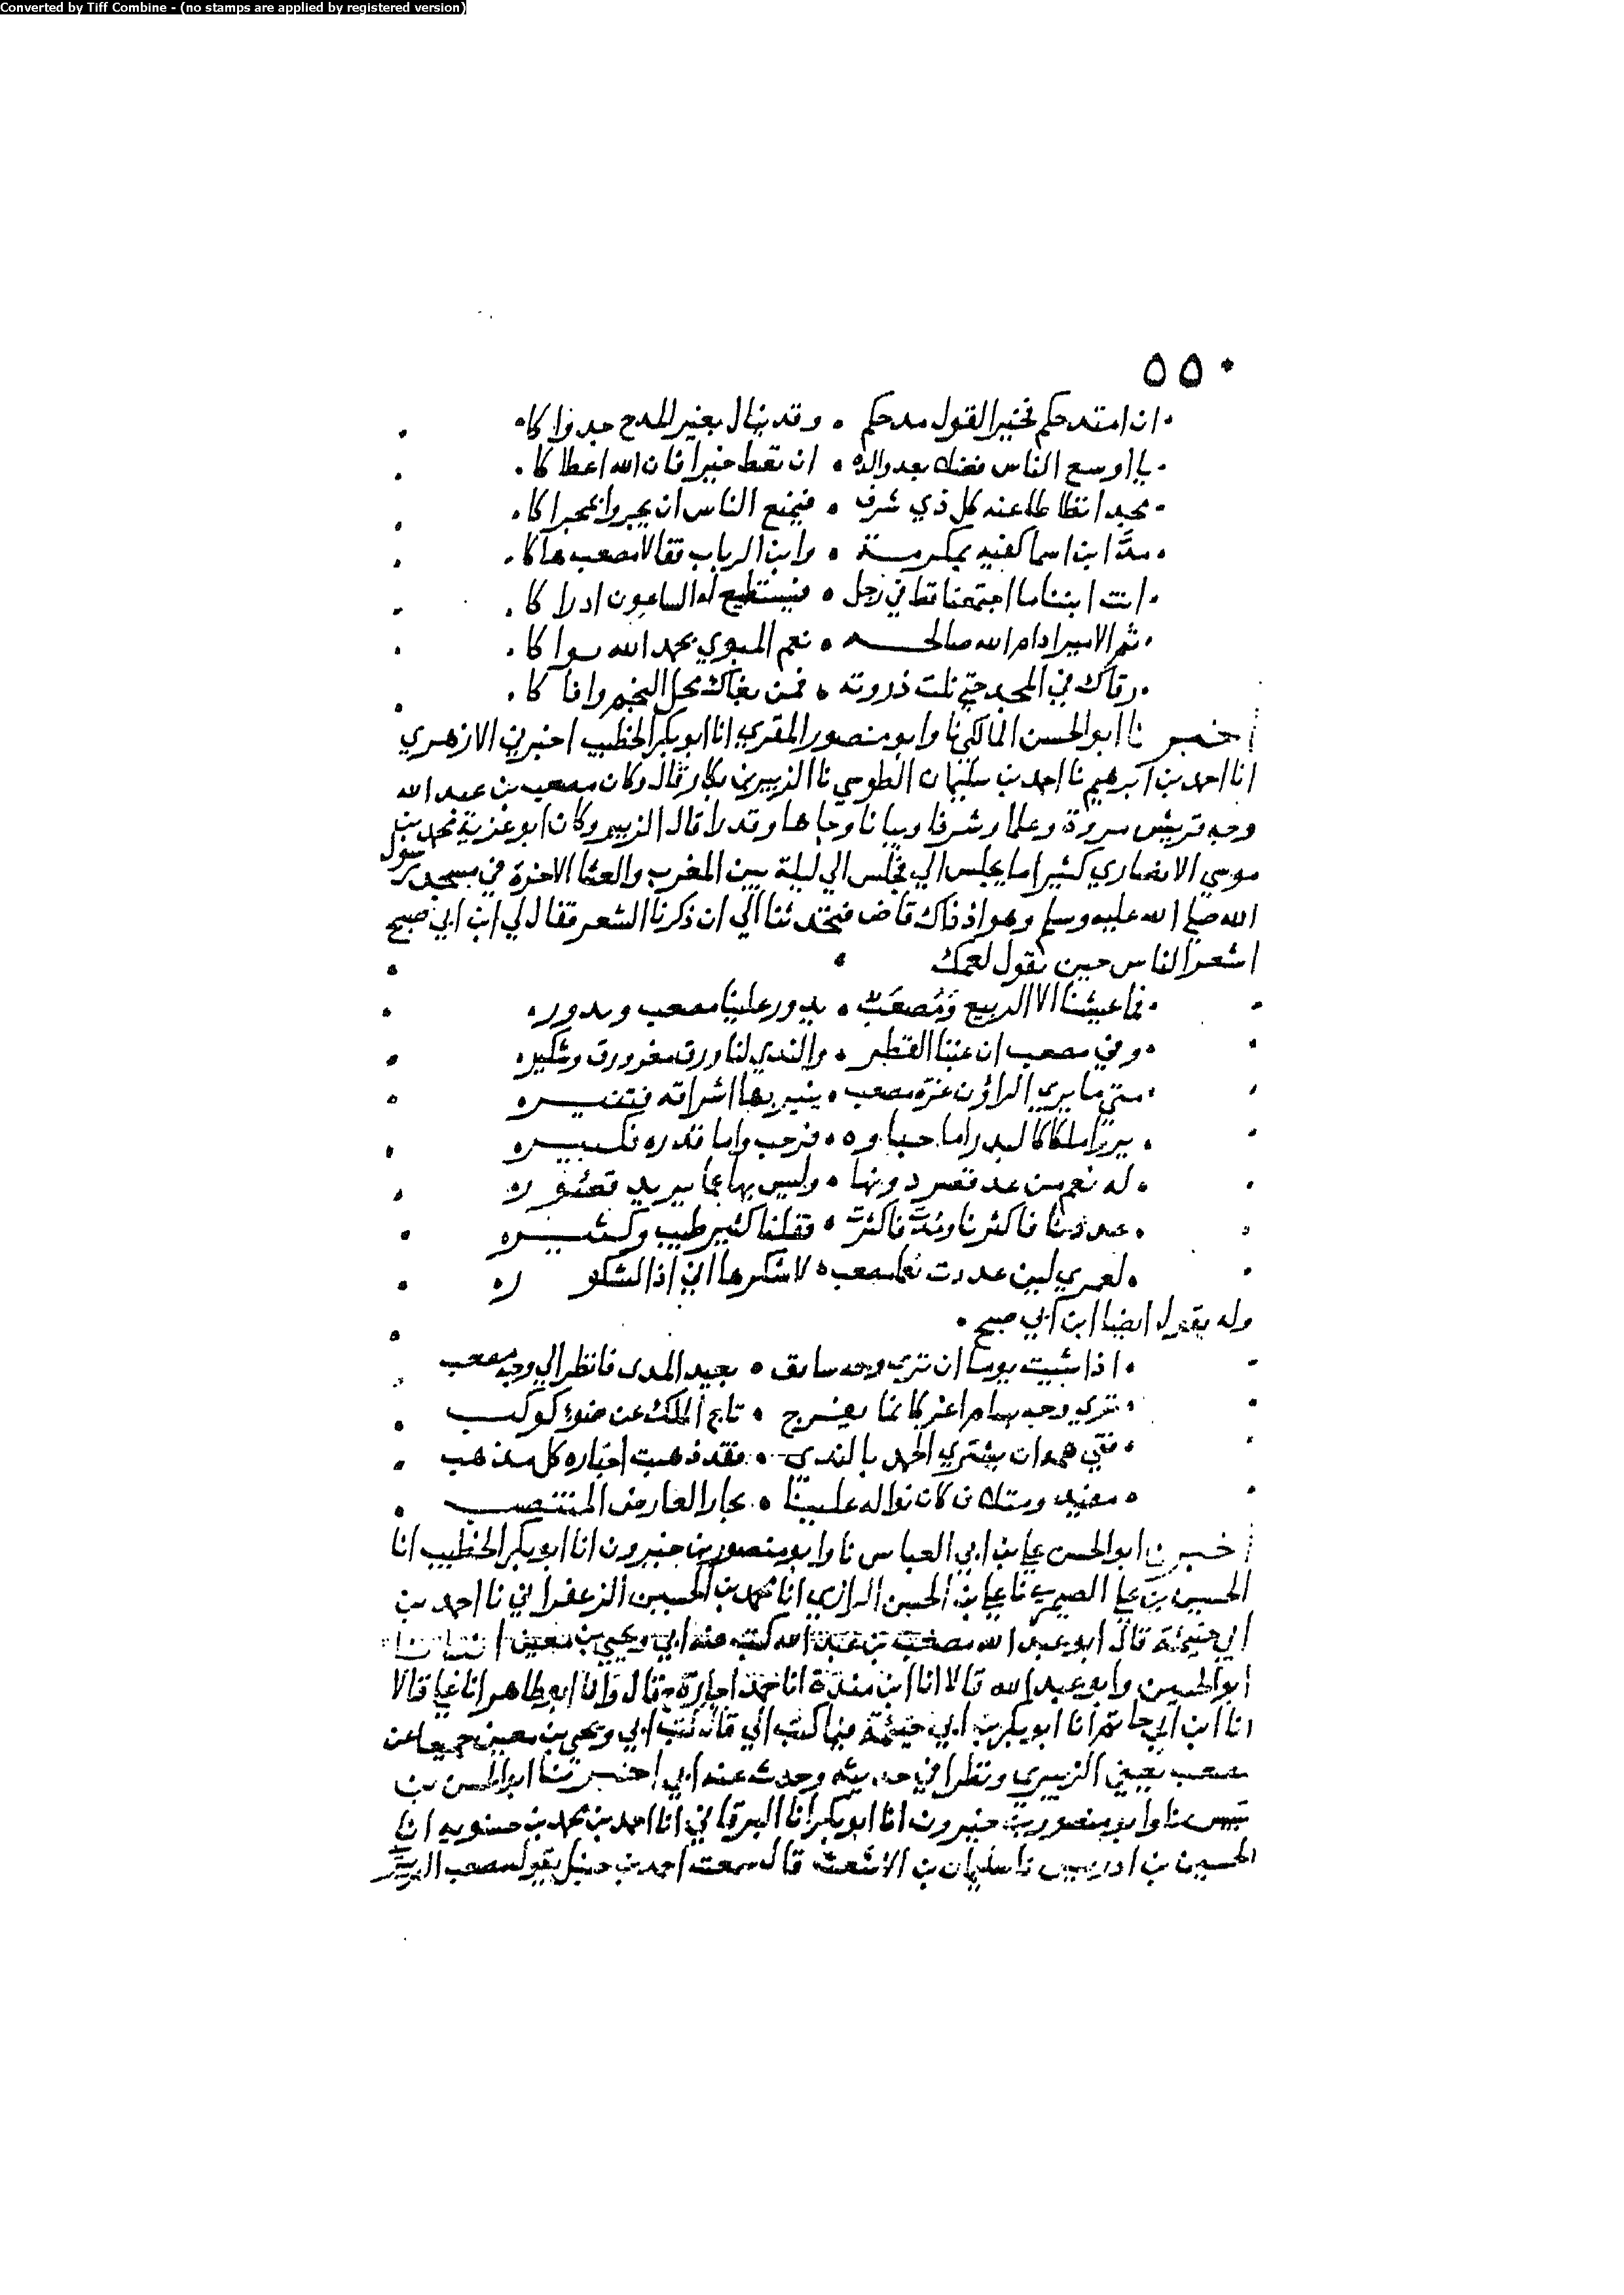 Converted by Tiff Combine - (no stamps are applied by registered version)
٥٥٠
ان امتدحكم فخير القول مدحكم ٠ وقد ينال بغير المدح جدواكا
يا اوسع الناس بعد والده ٠ ان تعط خيرا فان الله اعطاكا
مجدا تطاطا عنه كل ذي شرف ٠ فيمنع الناس ان يجروا بمجراكا
ابن اسما كفيه بمكرمة ٠ وابن الرباب فقالا مصعب هاكا
انت ابننا ما اجتمعنا قط في رجل ٠ فيستطيع له الساعون ادراكا
ثم الامير ادام الله صالحه ٠ نعم المبوي بحمد الله بواكا
رقاك في المجد حتى نلت ذروته ٠ فمن بغاك محل النجم وافاكا
اخبرنا ابو الحسن المالكي نا وابو منصور المقري انا ابو بكر الخطيب اخبرني الازهري
انا احمد بن ابرهيم نا احمد بن سليمان الطوسي نا الزبير بن بكار قال وكان مصعب بن عبد الله
وجه قريش مروة وعلما وشرفا وبيانا وجاها وقدرا قال الزبير وكان ابو غزية محمد بن
موسي الانصاري كثيرا ما يجلس الي فجلس الي ليلة بين المغرب والعشا الاخرة في مسجد رسول
الله صلى الله عليه وسلم وهو اذ ذاك قاض فتحدثنا الي ان ذكرنا الشعر فقال لي ابن ابي صبح
اشعر الناس حين يقول لعمك
فما عيشنا الا الربيع ومصعب ٠ يدور علينا مصعب ويدور
وفي مصعب ان غبنا القطر ٠ والندي لنا ورق مغرورق وشكير
متى ما يري الراؤن غرة مصعب ٠ ينير بها اشراقه فتنير
يروا ملكا كالبدر اما حباوه ٠ فرحب واما قدره فكبير
له نعم من عد قصر دونها ٠ وليس بها عما يريد قصور
عددنا فاكثرنا ومدت فاكثرت ٠ فقلنا كثير طيب وكثير
لعمري لين عددت نعما مصعب ٠ لاشكرها اني اذا لشكور
وله يقول ايضا ابن ابي صبح
اذا شيت يوما ان تري وجه سابق ٠ بعيد المدى فانظر الي وجه مصعب
تري وجه بسام اغر كانما يفرج ٠ تاج الملك عن ضوء كوكب
فتى همه ان يشتري الحمد بالندى ٠ فقد ذهبت اخباره كل مذهب
مفيد ومتلاف كان نواله علينا ٠ نجا العارض المتنصب
اخبرنا ابو الحسن علي بن ابي العباس نا وابو منصور بن خيرون انا ابو بكر الخطيب انا
الحسين بن علي الصيمري نا علي بن الحسن الرازي انا محمد بن الحسين الزعفراني نا احمد بن
ابي خيثمة قال ابو عبد الله مصعب بن عبد الله كتب عنه ابي ويحيى بن معين انبانا
ابو الحسين وابو عبد الله قالا انا ابن مندة انا حمد اجازة قال وانا ابو طاهر انا علي قالا
انا ابن ابي حاتم انا ابو بكر بن ابي خيثمة فيما كتب الي قال كتب ابي ويحيى بن معين جميعا عن
مصعب يعني الزبيري ونظرا في حديثه وحدث عنه ابي اخبرنا ابو الحسن بن
قبيس نا وابو منصور بن خيرون انا ابو بكر انا البرقاني انا احمد بن محمد بن حسنويه انا
الحسين بن ادريس نا سليمان بن الاشعث قال سمعت احمد بن حنبل يقول مصعب الزبيري